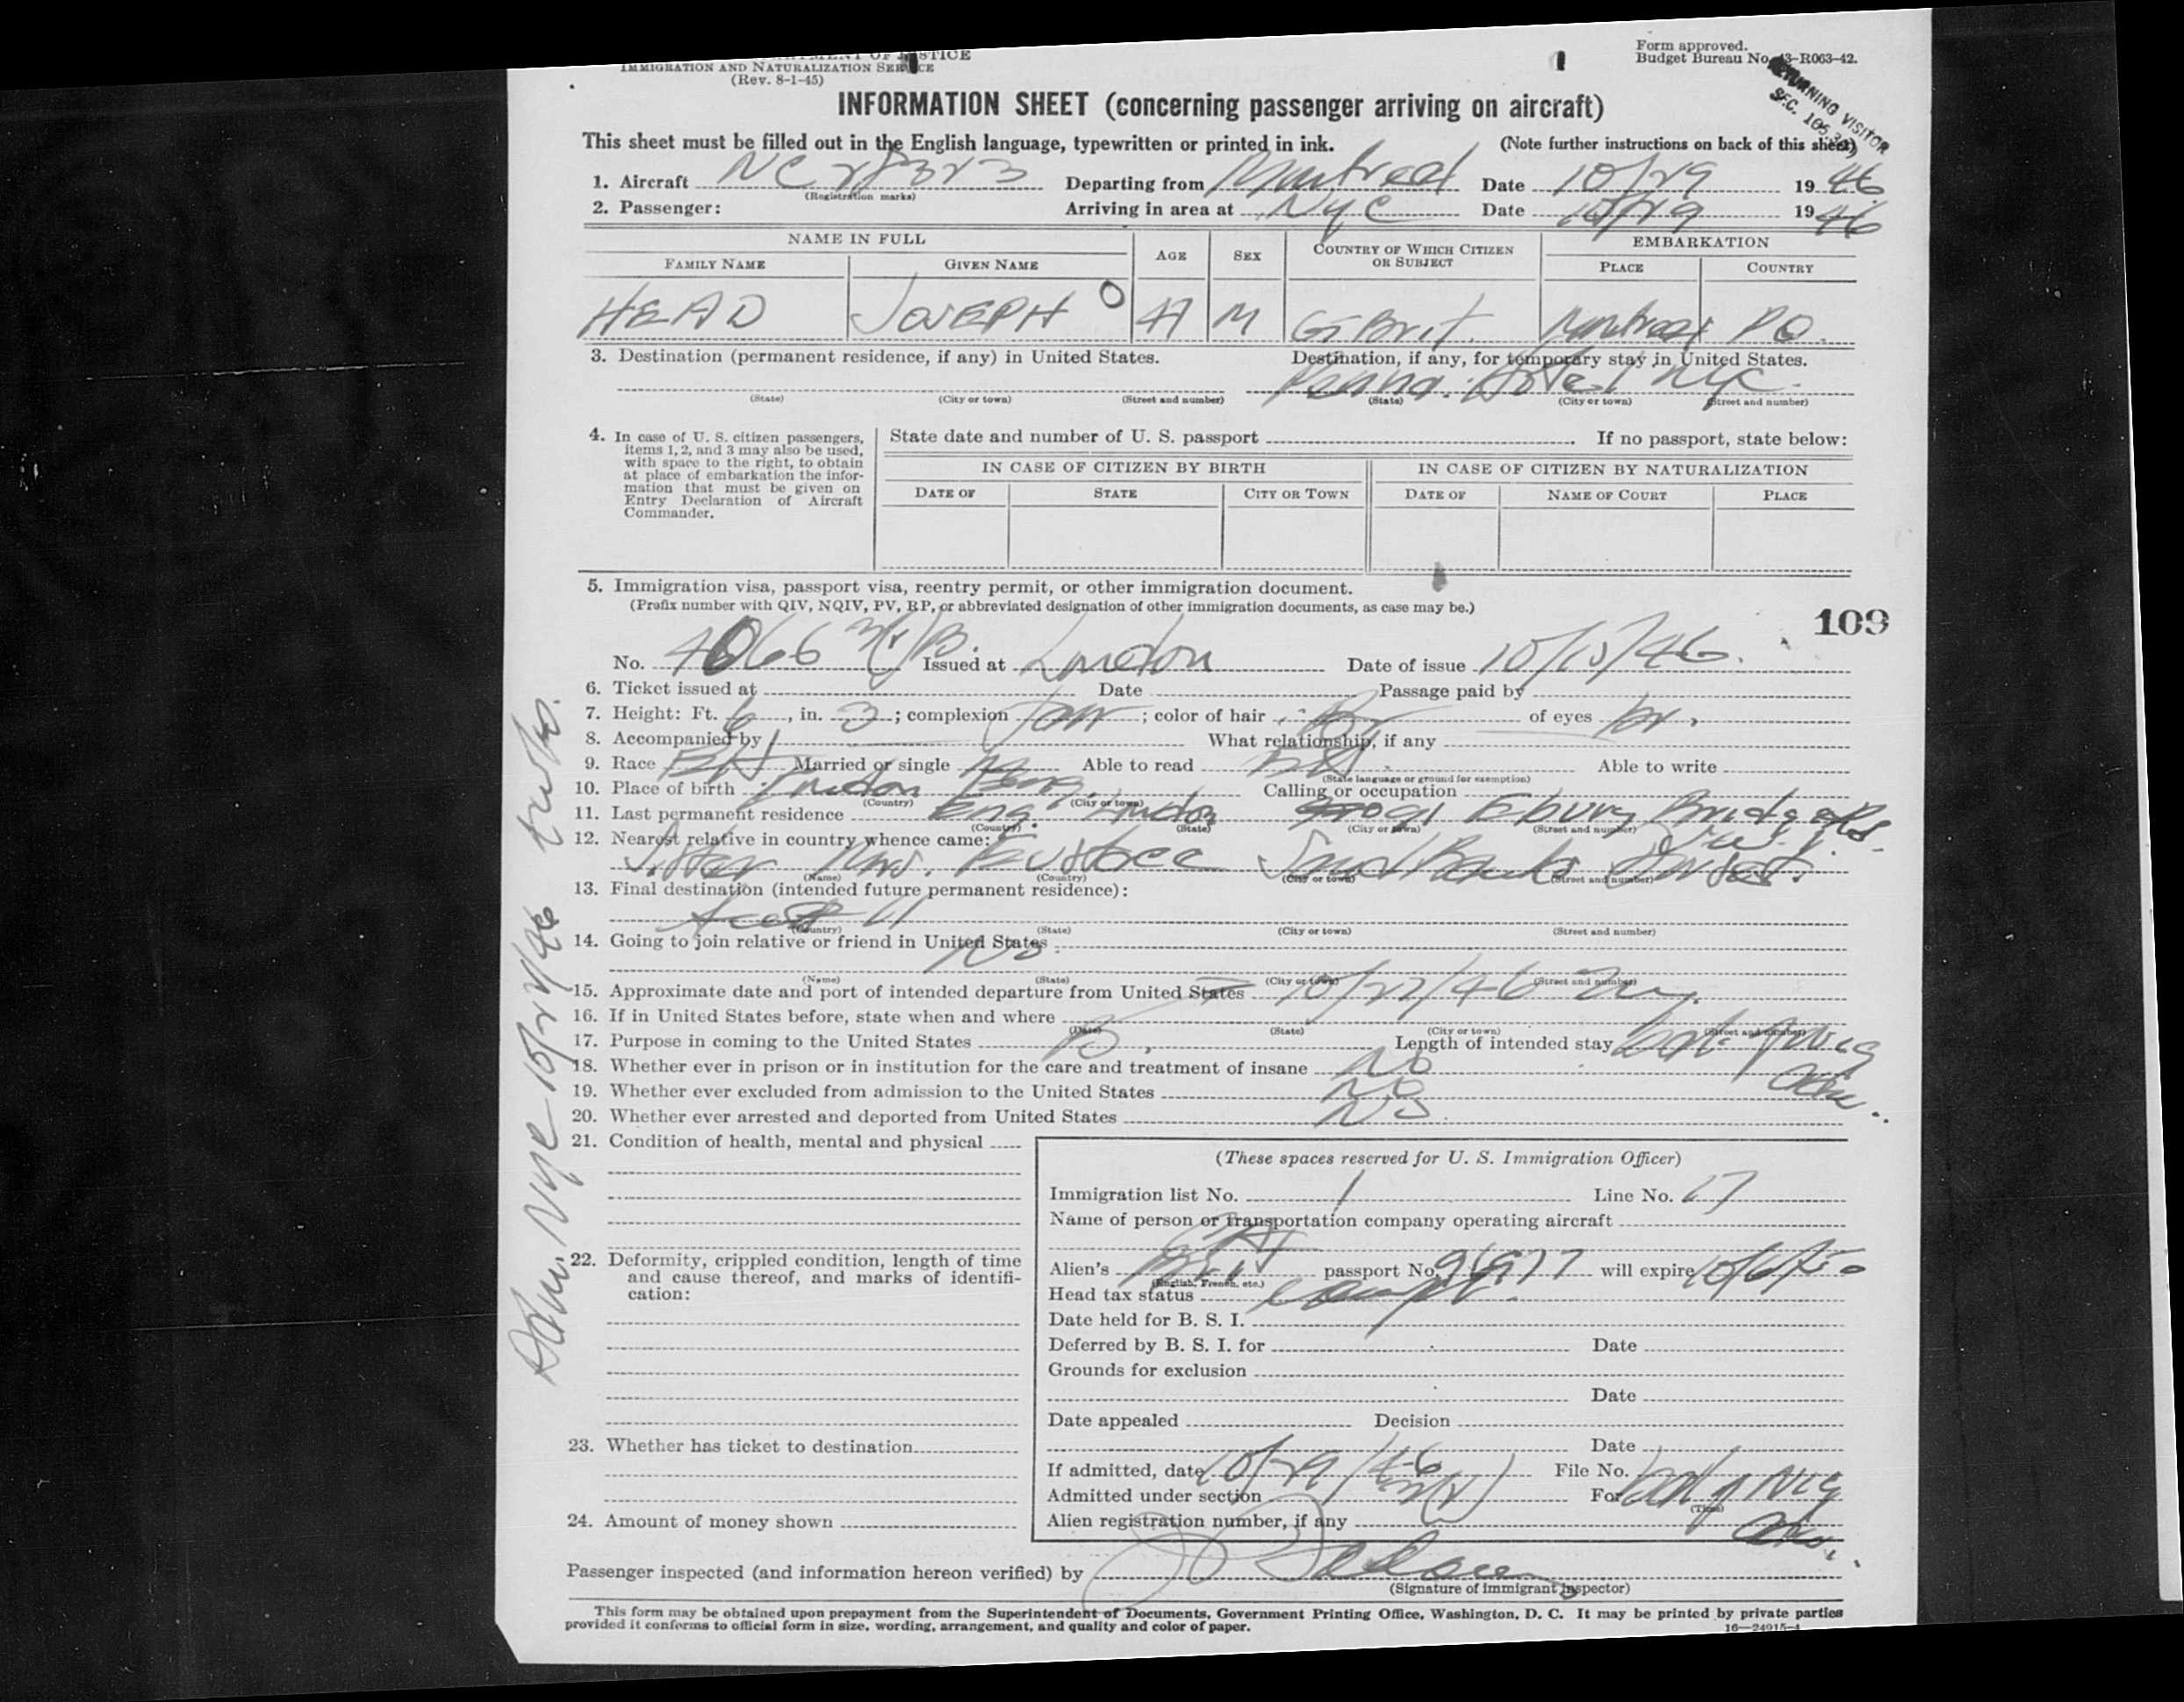 IMMIGRATION AND NATURALIZATION SERVICE
(Rev. 8-1-45)
Form approved.
Budget Bureau No. 43-R063-42.
RETURNING VISITOR
SEC.
INFORMATION SHEET (concerning passenger arriving on aircraft)
This sheet must be filled out in the English language, typewritten or printed in ink. (Note further instructions on back of this sheet)
1. Aircraft NC 28323 Departing from Montreal Date 10/29 1946
(Registration marks)
2. Passenger: Arriving in area at NYC Date 10/29 1946
NAME IN FULL AGE SEX COUNTRY OF WHICH CITIZEN OR SUBJECT EMBARKATION
FAMILY NAME GIVEN NAME PLACE COUNTRY
HEAD JOSEPH O 47 M Gt Brit. Montreal PQ.
3. Destination (permanent residence, if any) in United States. Destination, if any, for temporary stay in United States.
Penna. Hotel NYC.
(State) (City or town) (Street and number) (State) (City or town) (Street and number)
4. In case of U. S. citizen passengers, items 1, 2, and 3 may also be used, with space to the right, to obtain at place of embarkation the information that must be given on Entry Declaration of Aircraft Commander.
State date and number of U. S. passport If no passport, state below:
IN CASE OF CITIZEN BY BIRTH IN CASE OF CITIZEN BY NATURALIZATION
DATE OF STATE CITY OR TOWN DATE OF NAME OF COURT PLACE
5. Immigration visa, passport visa, reentry permit, or other immigration document.
(Prefix number with QIV, NQIV, PV, RP, or abbreviated designation of other immigration documents, as case may be.)
109
No. Issued at London Date of issue 10/15/46.
6. Ticket issued at Date Passage paid by
7. Height: Ft. 6, in. 3; complexion fair; color of hair Br of eyes br.
8. Accompanied by What relationship, if any
9. Race Married or single Able to read Able to write
(State language or ground for exemption)
10. Place of birth London Eng. Calling or occupation
(Country) (City or town)
11. Last permanent residence Eng. London Ebury Bridge Rd.
(Country) (State) (City or town) (Street and number)
12. Nearest relative in country whence came: S.W.1.
Sister Mrs. Eustace Sandbanks Dorset.
(Name) (Country) (City or town) (Street and number)
13. Final destination (intended future permanent residence):
(Country) (State) (City or town) (Street and number)
14. Going to join relative or friend in United States No.
(Name) (State) (City or town) (Street and number)
15. Approximate date and port of intended departure from United States
16. If in United States before, state when and where
(Date) (State) (City or town) (Street and number)
17. Purpose in coming to the United States B. Length of intended stay
18. Whether ever in prison or in institution for the care and treatment of insane No
19. Whether ever excluded from admission to the United States No
20. Whether ever arrested and deported from United States No.
21. Condition of health, mental and physical
22. Deformity, crippled condition, length of time and cause thereof, and marks of identification:
23. Whether has ticket to destination
24. Amount of money shown
(These spaces reserved for U. S. Immigration Officer)
Immigration list No. 1 Line No. 17
Name of person or transportation company operating aircraft
Alien's Brit passport No. will expire 10/6/50
(English, French, etc.)
Head tax status exempt.
Date held for B. S. I.
Deferred by B. S. I. for Date
Grounds for exclusion
Date
Date appealed Decision
Date
If admitted, date 10/29/46 File No.
Admitted under section 3(2) For
(Time)
Alien registration number, if any
Passenger inspected (and information hereon verified) by
(Signature of Immigrant Inspector)
This form may be obtained upon prepayment from the Superintendent of Documents, Government Printing Office, Washington, D. C. It may be printed by private parties
provided it conforms to official form in size, wording, arrangement, and quality and color of paper.
16—24915-1